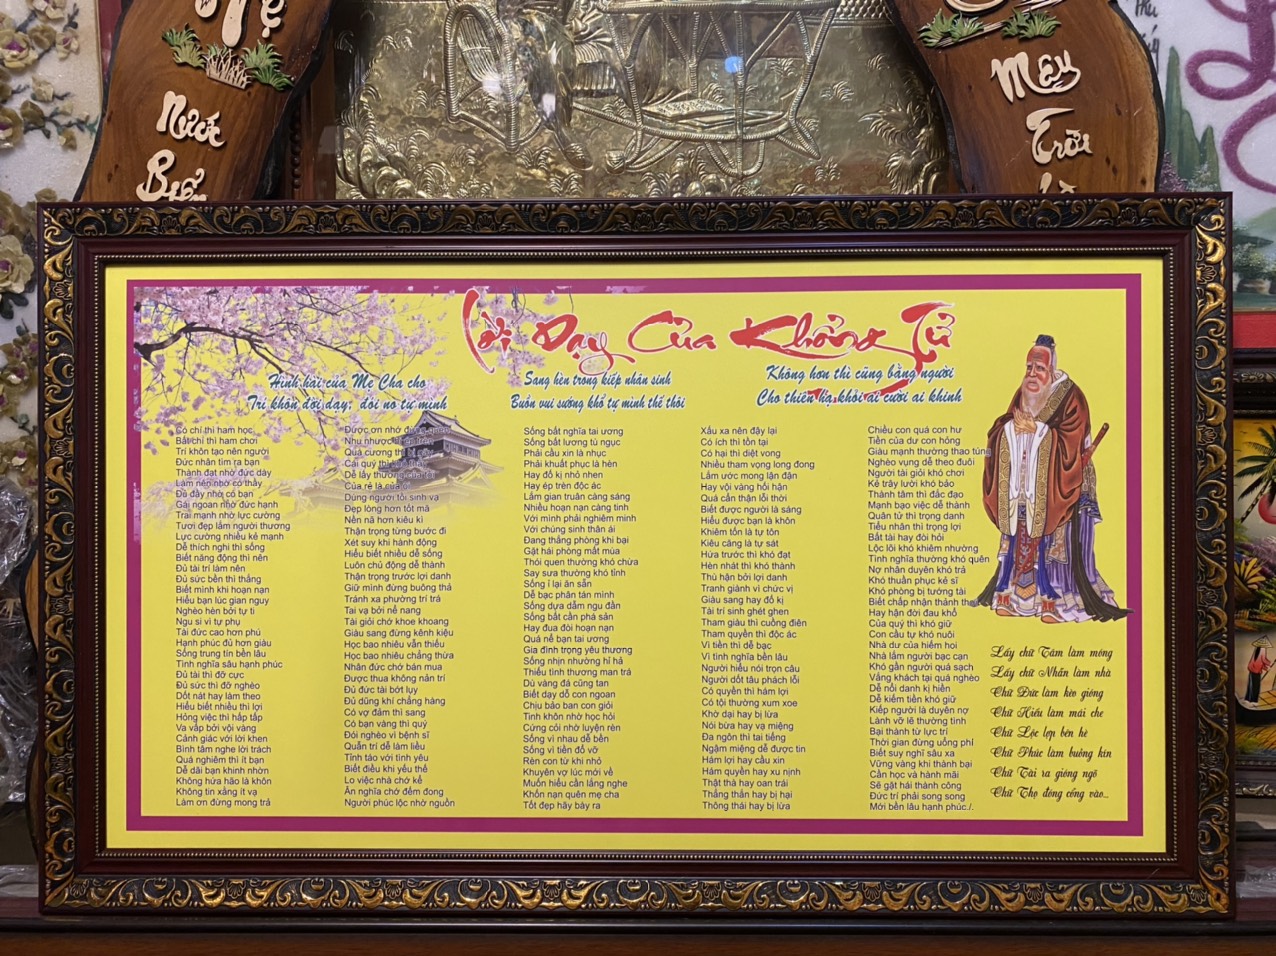 Mẹ
Nước
Biển
Mây
Trời
Lời Dạy Của Khổng Tử
Hình hài của Mẹ Cha cho
Trí khôn đời dạy, đói no tự mình
Sang hèn trong kiếp nhân sinh
Buồn vui sướng khổ tự mình thế thôi
Không hơn thì cũng bằng người
Cho thiên hạ khỏi ai cười ai khinh
Có chí thì ham học
Bất chí thì ham chơi
Trí khôn tạo nên người
Đức nhân tìm ra bạn
Thành đạt nhờ đức dày
Làm nên nhờ có thầy
Đủ đầy nhờ có bạn
Gái ngoan nhờ đức hạnh
Trai mạnh nhờ lực cường
Tươi đẹp lắm người thương
Lực cường nhiều kẻ mạnh
Dễ thích nghi thì sống
Biết năng động thì nên
Đủ tài trí làm nên
Đủ sức bền thì thắng
Biết mình khi hoạn nạn
Hiểu bạn lúc gian nguy
Nghèo hèn bởi tự ti
Ngu si vì tự phụ
Tài đức cao hơn phú
Hạnh phúc đủ hơn giàu
Sống trung tín bền lâu
Tình nghĩa sâu hạnh phúc
Đủ tài thì đỡ cực
Đủ sức thì đỡ nghèo
Dốt nát hay làm theo
Hiểu biết nhiều thì lợi
Hỏng việc thì hấp tấp
Va vấp bởi vội vàng
Cảnh giác với lời khen
Bình tâm nghe lời trách
Quá nghiêm thì ít bạn
Dễ dãi bạn khinh nhờn
Không hứa hão là khôn
Không tin xằng ít vạ
Làm ơn đừng mong trả
Được ơn nhớ đừng quên
Nhu nhược bị ép trên
Quá cương thì bị gãy
Cái quý thì khó thấy
Dễ lấy thường của tồi
Của rẻ là của ôi
Dùng người tồi sinh vạ
Đẹp lòng hơn tốt mã
Nền nã hơn kiêu kì
Thận trọng từng bước đi
Xét suy khi hành động
Hiểu biết nhiều dễ sống
Luôn chủ động dễ thành
Thận trọng trước lợi danh
Giữ mình đừng buông thả
Tránh xa phường trí trá
Tai vạ bởi nể nang
Tài giỏi chớ khoe khoang
Giàu sang đừng kênh kiệu
Học bao nhiêu vẫn thiếu
Học bao nhiêu chẳng thừa
Nhân đức chớ bán mua
Được thua không nản trí
Đủ đức tài bớt lụy
Đủ dũng khí chẳng hàng
Có vợ đảm thì sang
Có bạn vàng thì quý
Đói nghèo vì bệnh sĩ
Quẫn trí dễ làm liều
Tỉnh táo với tình yêu
Biết điều khi yếu thế
Lo việc nhà chớ kể
Ân nghĩa chớ đếm đong
Người phúc lộc nhờ nguồn
Sống bất nghĩa tai ương
Sống bất lương tù ngục
Phải cầu xin là nhục
Phải khuất phục là hèn
Hay đố kị nhỏ nhen
Hay ép trên độc ác
Lắm gian truân càng sáng
Nhiều hoạn nạn càng tinh
Với mình phải nghiêm minh
Với chúng sinh thân ái
Đang thắng phòng khi bại
Gặt hái phòng mất mùa
Thói quen thường khó chừa
Say sưa thường khó tỉnh
Sống ỉ lại ăn sẵn
Dễ bạc phận tán mình
Sống dựa dẫm ngu đần
Sống bất cần phá sản
Hay đua đòi hoạn nạn
Quá nể bạn tai ương
Gia đình trọng yêu thương
Sống nhịn nhường hỉ hả
Thiếu tình thương man trá
Dù vàng đá cũng tan
Biết dạy dỗ con ngoan
Chịu bảo ban con giỏi
Tinh khôn nhờ học hỏi
Cứng cỏi nhờ luyện rèn
Sống vì nhau dễ bền
Sống vì tiền đổ vỡ
Rèn con từ khi nhỏ
Khuyên vợ lúc mới về
Muốn hiểu cần lắng nghe
Khốn nạn quên mẹ cha
Tốt đẹp hãy bày ra
Xấu xa nên đậy lại
Có ích thì tồn tại
Có hại thì diệt vong
Nhiều tham vọng long đong
Lắm ước mong lận đận
Hay vội vàng hối hận
Quá cẩn thận lỗi thời
Biết được người là sáng
Hiểu được bạn là khôn
Khiêm tốn là tự tôn
Kiêu căng là tự sát
Hứa trước thì khó đạt
Hèn nhát thì khó thành
Thù hận bởi lợi danh
Tranh giành vì chức vị
Giàu sang hay đố kị
Tài trí sinh ghét ghen
Tham giàu thì cuồng điên
Tham quyền thì độc ác
Vì tiền thì dễ bạc
Vì tình nghĩa bền lâu
Người hiểu nói trọn câu
Người dốt tâu phách lối
Có quyền thì hám lợi
Có tội thường xum xoe
Khờ dại hay bị lừa
Nói bừa hay vạ miệng
Đa ngôn thì tai tiếng
Ngậm miệng dễ được tin
Hám lợi hay cầu xin
Hám quyền hay xu nịnh
Thật thà hay oan trái
Thẳng thắn hay bị hại
Thông thái hay bị lừa
Chiều con quá con hư
Tiền của dư con hỏng
Giàu mạnh thường thao túng
Nghèo vụng dễ theo đuôi
Người tài giỏi khó chơi
Kẻ trây lười khó bảo
Thành tâm thì đắc đạo
Mạnh bạo việc dễ thành
Quân tử thì trọng danh
Tiểu nhân thì trọng lợi
Bất tài hay đòi hỏi
Lọc lõi khó khiêm nhường
Tình nghĩa thường khó quên
Nợ nhân duyên khó trả
Khó thuần phục kẻ sĩ
Khó phòng bị tướng tài
Biết chấp nhận thảnh thơi
Hay hận đời đau khổ
Của quý thì khó giữ
Con cầu tự khó nuôi
Nhà dư của hiếm hoi
Nhà lắm người bạc cạn
Khó gần người quá sạch
Vắng khách tại quá nghèo
Dễ nổi danh kị hiền
Dễ kiếm tiền khó giữ
Kiếp người là duyên nợ
Lành vỡ lẽ thường tình
Bại thành từ quá trình
Thời gian đừng uổng phí
Biết suy nghĩ sâu xa
Vững vàng khi thành bại
Cần học và hành mãi
Sẽ gặt hái thành công
Đức trí phải song song
Mới bền lâu hạnh phúc./.
Lấy chữ Tâm làm móng
Lấy chữ Nhân làm nhà
Chữ Đức làm kèo giống
Chữ Hiếu làm mái che
Chữ Lộc lợp bên hè
Chữ Phúc làm buồng kín
Chữ Tài ra gióng ngõ
Chữ Thọ đóng cổng vào...